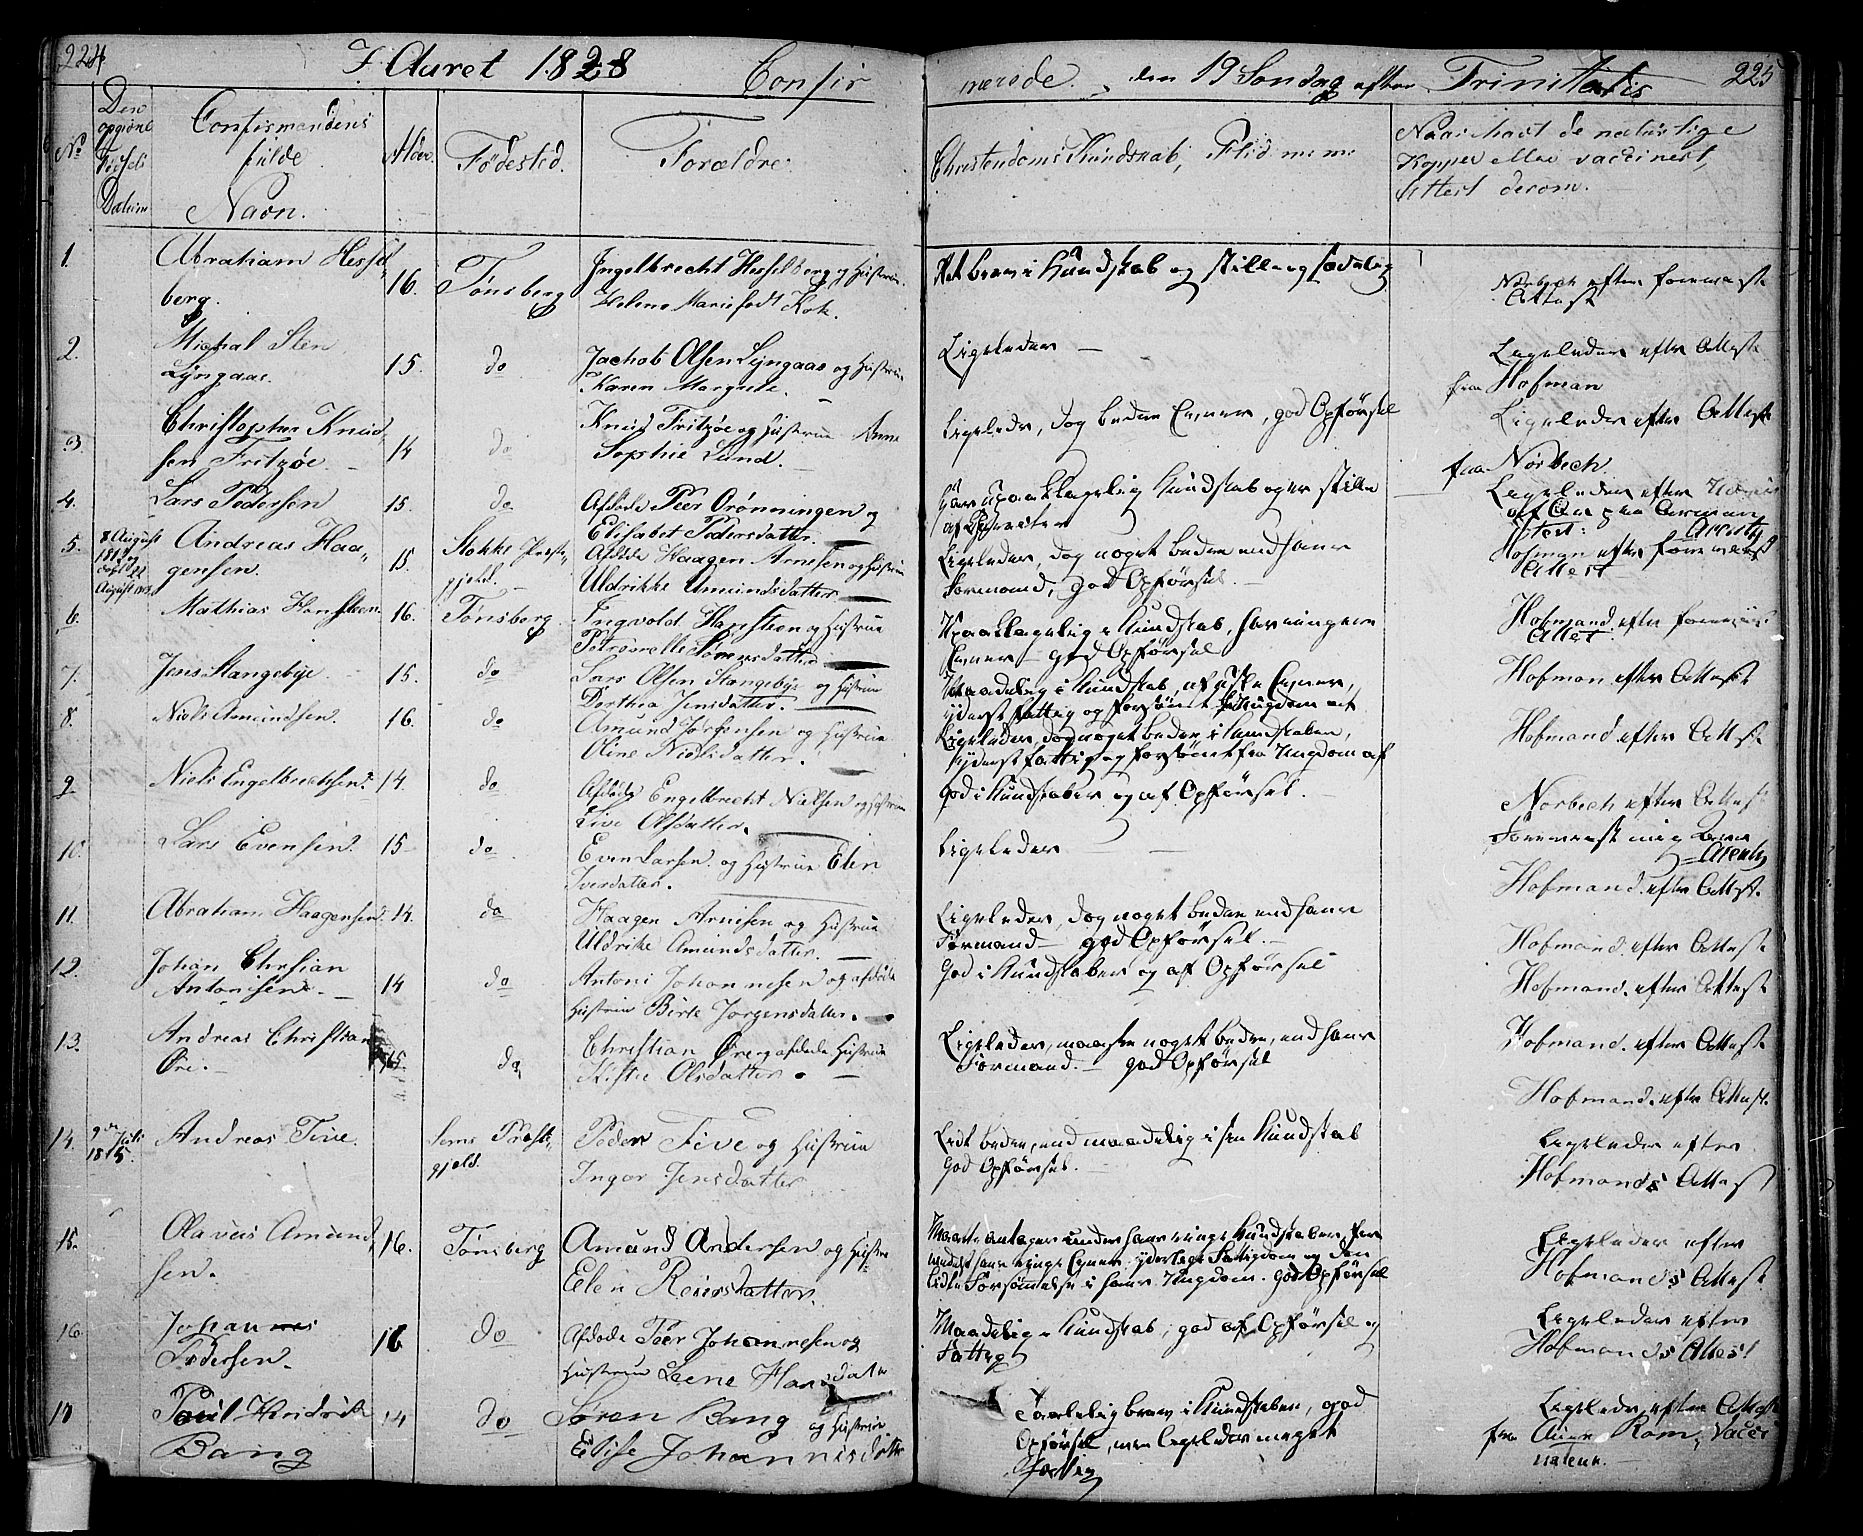 224
I Aaret 1828 Confir
merede. den 19 Søndag efter Trinitatis 225
No
Den opgivne Fødsels Datum
Confirmandens fulde Navn.
Alder.
Fødested.
Forældre.
Christendoms Kundskab, Flid m: m:
Naar havt de naturlige
Kopper eller vaccineret,
Attest derom.
1. Abraham Hessel
berg. 16. Tønsberg
Ingelbrecht Hesselberg og Hustrue
Helene Marie født Kok.
Ret brav i Kundskab og stille og sædelig
Norbech efter foreviiste
Attest
2. Michal Sten
Lyngaas. 15. do
Jachob Olsen Lyngaas og Hustrue
Karen Margrete.
Ligeledes —
Ligeledes efter Attest
fra Hofman
3. Christopher Knud
sen Fritzøe. 14 do
Knud Fritzøe og Hustrue Anne
Sophie Lund.
Ligeledes, dog bedre Evner, god Opførsel
Ligeledes efter Attest
fra Norbech.
4. Lars Pedersen 15. do
Afdøde Peer Drønningen og
Elisabet Pedersdatter.
har upaaklagelig Kundskab og er stille
af
Ligeledes efter
Arentz
5. 8 August
1813
Andreas Haa
gensen. 15. Stokke Præste
gjeld.
Afdøde Haagen Arnesen og Hustrue
Uldrikke Amundsdatter.
Ligeledes, dog noget bedre end hans
Formand, god Opførsel.
Hofman efter foreviist
Attest
6. Mathias Hansteen 16. Tønsberg
Ingvold Hansteen og Hustrue
Petronelle Sørensdatter
Upaaklagelig i Kundskab, har ringere
Evner — god Opførsel
Hofmand efter foreviist
Attest
7. Jens Stangebye. 15. do
Lars Olsen Stangebye og Hustrue
Dorthea Jensdatter.
Maadelig i Kundskab, af Evner,
yderst fattig og forsømt
Hofman efter Attest
8. Niels Amundsen. 16. do
Amund Jørgensen og Hustrue
Oline Nielsdatter.
Ligeledes, dog noget bedre i Kundskaber,
yderst fattig og forsømt fra Ungdom af
Hofmand efter Attest
9. Niels Engelbrechtsen. 14. do
Afdøde Engelbrecht Nielsen og Hustrue
Live Olsdatter.
God i Kundskaber og af Opførsel.
Norbech efter Attest
10. Lars Evensen. 15 do
Even Larsen. og Hustrue Elen
Iversdatter.
Ligeledes —
Foreviist mig
Arentz
Hofmand. efter Attest.
11. Abraham Haagensen. 14. do
Haagen Arnesen og Hustrue
Uldrike Amundsdatter.
Ligeledes, dog noget bedre end hans
Formand — god Opførsel. —
Hofmand. efter Attest
12. Johan Chrsian
Antonsen. 14 do
Antoni Johannesen og afdøde
Hustrue Birte Jorgensdatter.
God i Kundskaber og af Opførsel
Hofmand. efter Attest
13. Andreas Christian
Øre. 15. do
Christian Øre og afdøde Hustrue
Kistie Olsdatter. —
Ligeledes, maaskee noget bedre, end hans
Formand. — god Opførsel
Hofmand. efter Attest
Hofmand. efter Attest.
14. 9de Juli
1815.
Andreas Five. Sems Præste
gjeld.
Peder Five og Hustrue
Inger Jensdatter
Lidt bedre, end maadelig i sin Kundskab
God Opførsel. —
Ligeledes efter
Hofmands Attest
15. Olaveus Amund
sen. 16. Tønsberg
Amund Andersen og Hustrue
Elen Reiersdatter.
Maatte antages under hans ringe Kundskaber, for
medelst hans ringe Evner, yderlige Fattigdom og den
lidte Forsømmelse i hans Ungdom. god Opførsel
Ligeledes efter
Hofmands Attest
16. Johannes
Pedersen. 16 do
Afdøde Peer Johannesen og
Hustrue Leene Hansdatte
Maadelig i Kundskab, god af Opførsel og
Fattig
Ligeledes efter
Hofmands Attest
17 Poul Hendrik
Bang 14 do
Søren Bang og Hustrue
Elise Johannisdatte
Taalelig brav i Kundskaber, god
Opførsel, men ligeledes meget
Ligeledes efter Attest
fra Rom, Vacci
nateur.